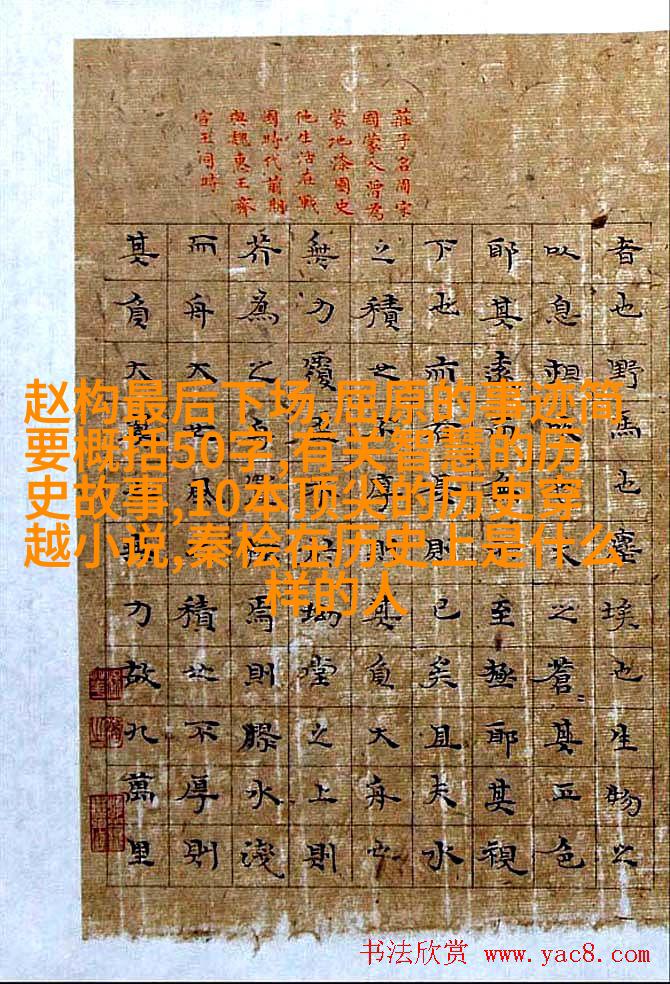 莊子名周宋
國蒙人曾為
蒙地漆園史
他生活在戰
國時代前期
與魏惠王齊
宣王同時
者也野馬也塵埃也生物之
以息相吹也天之蒼〻其正色
耶其遠而至極耶其視
下也而則已矣且夫水
之積也不厚則其負大舟也
無力覆坳堂之上則
芥為之焉則膠水淺
而舟大風積也不厚則
其負大翼力故九萬里
赵构最后下场,屈原的事迹简
要概括50字,有关智慧的历
史故事,10本顶尖的历史穿
越小说,秦桧在历史上是什么
样的人
书法欣赏 www.yac8.com